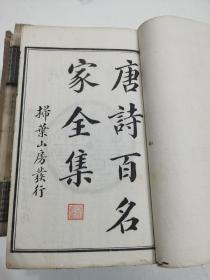 唐詩百名
家全集
掃葉山房發行